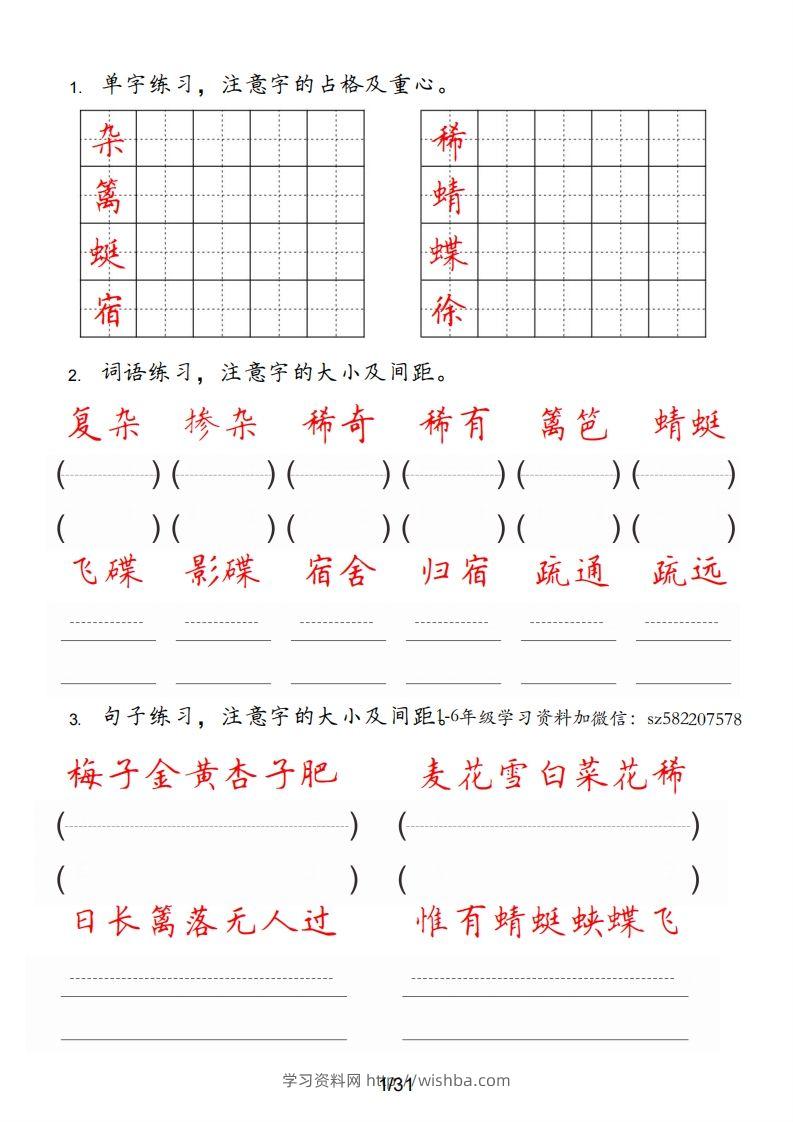 1. 单字练习，注意字的占格及重心。
杂 稀
篱 蜻
蜓 蝶
宿 徐
2. 词语练习，注意字的大小及间距。
复杂 掺杂 稀奇 稀有 篱笆 蜻蜓
( ) ( ) ( ) ( ) ( ) ( )
( ) ( ) ( ) ( ) ( ) ( )
飞碟 影碟 宿舍 归宿 疏通 疏远
3. 句子练习，注意字的大小及间距。1-6年级学习资料加微信：sz582207578
梅子金黄杏子肥 麦花雪白菜花稀
( ) ( )
( ) ( )
日长篱落无人过 惟有蜻蜓蛱蝶飞
学习资料网 http://wishba.com
1/31